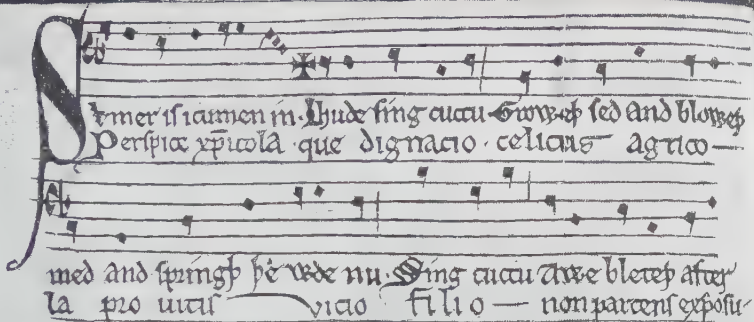 Sumer is icumen in· Lhude sing cuccu· Groweþ sed and bloweþ
Perspice xp̄icola· que dignacio· celicus agrico—
med and springþ þe wde nu· Sing cuccu Awe bleteþ after
la pro uitis vicio filio— non parcens exposu-